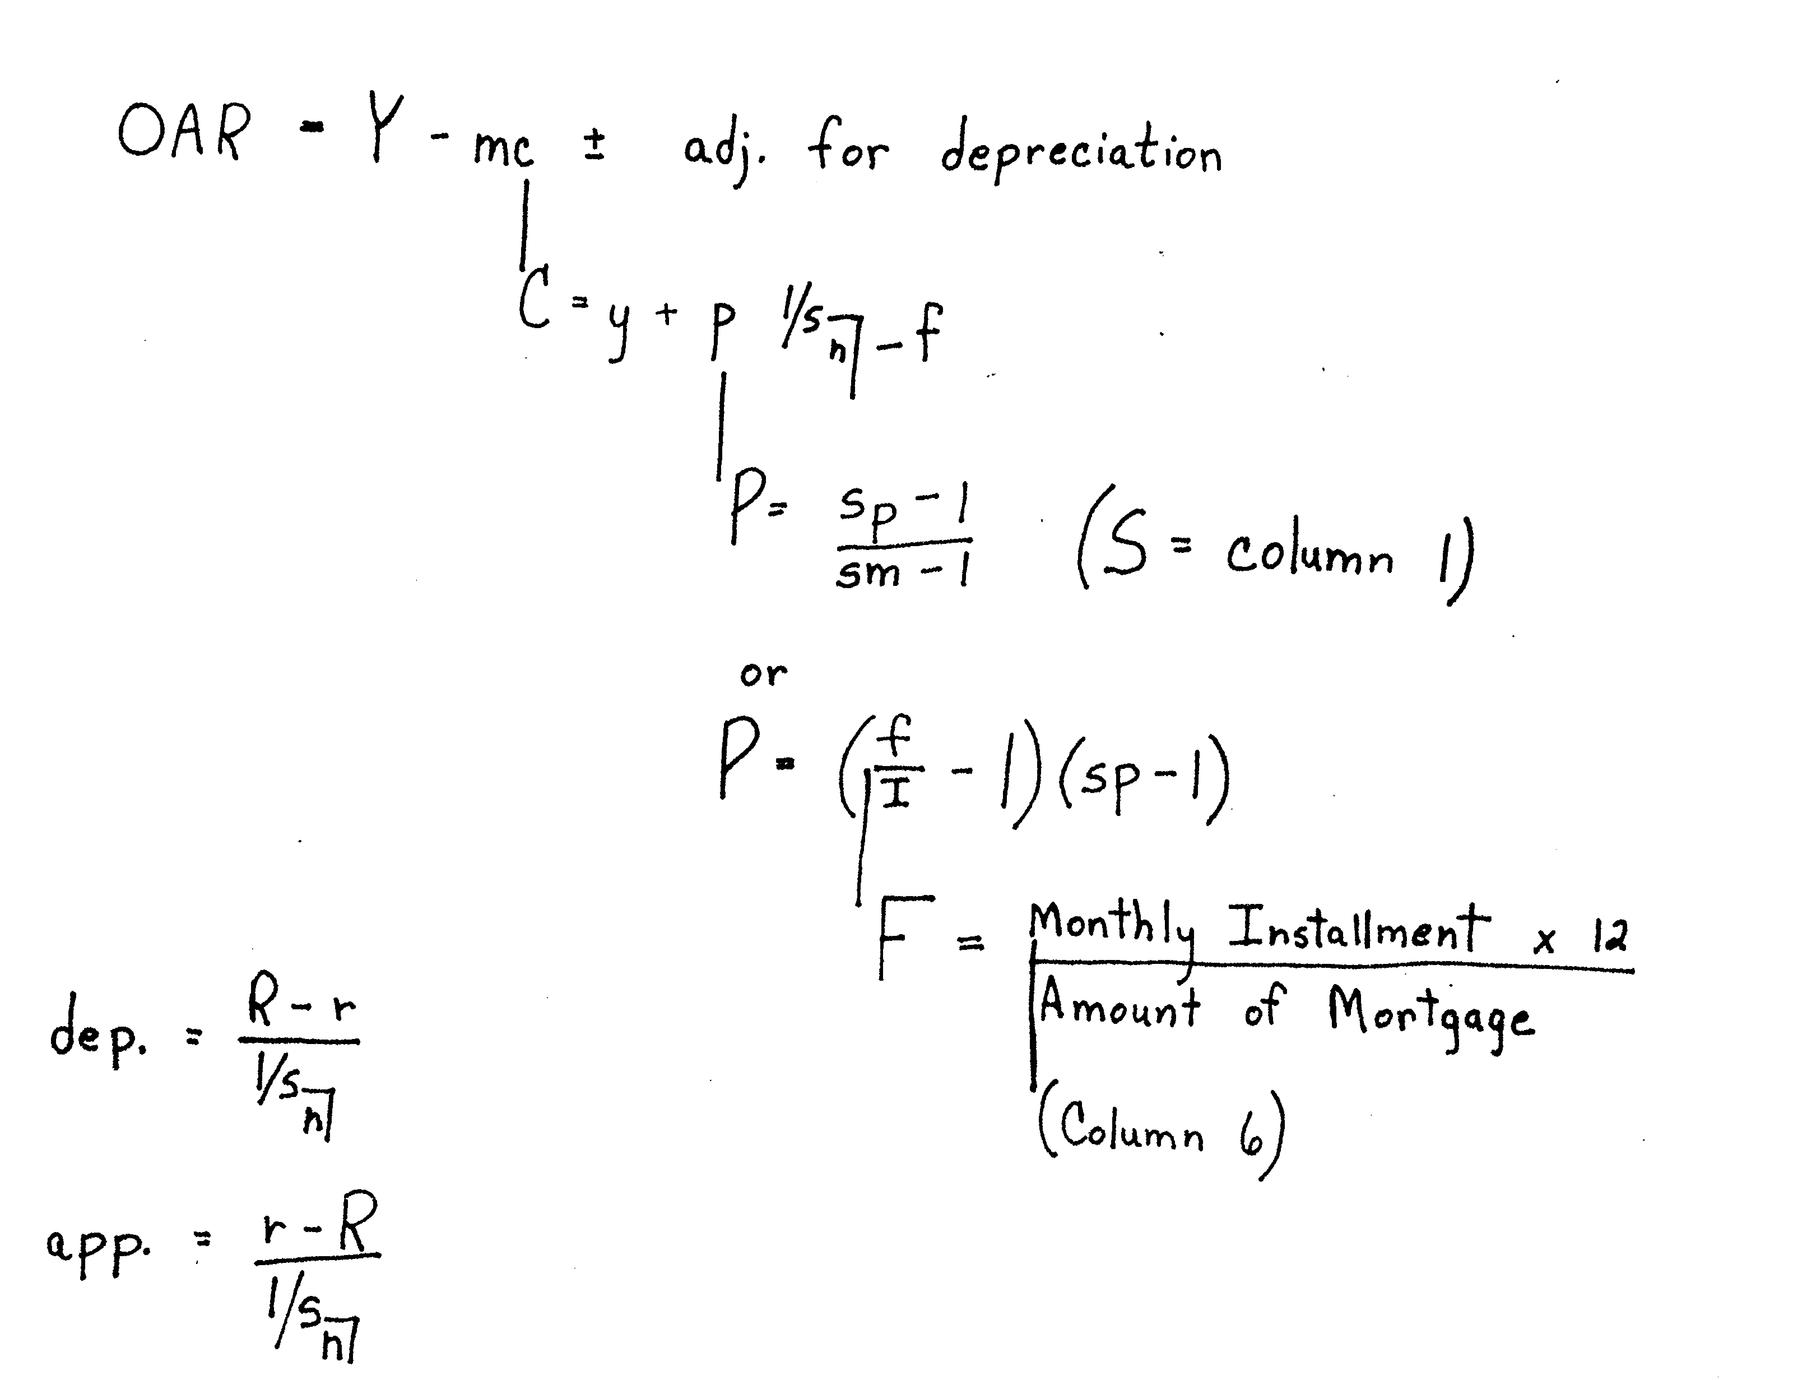 OAR = Y - mc ± adj. for depreciation
C = y + p 1/s n⌉ - f
P = sp - 1 / sm - 1 (S = column 1)
or
P = (f/I - 1)(sp - 1)
F = Monthly Installment x 12 / Amount of Mortgage
(Column 6)
dep. = R - r / 1/s n⌉
app. = r - R / 1/s n⌉